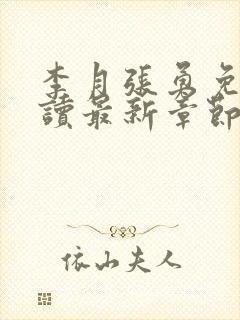 李月張勇免
讀最新章節
依山夫人